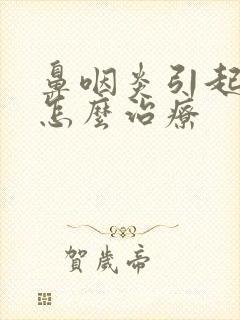 鼻咽炎引起
怎麼治療
賀歲帝